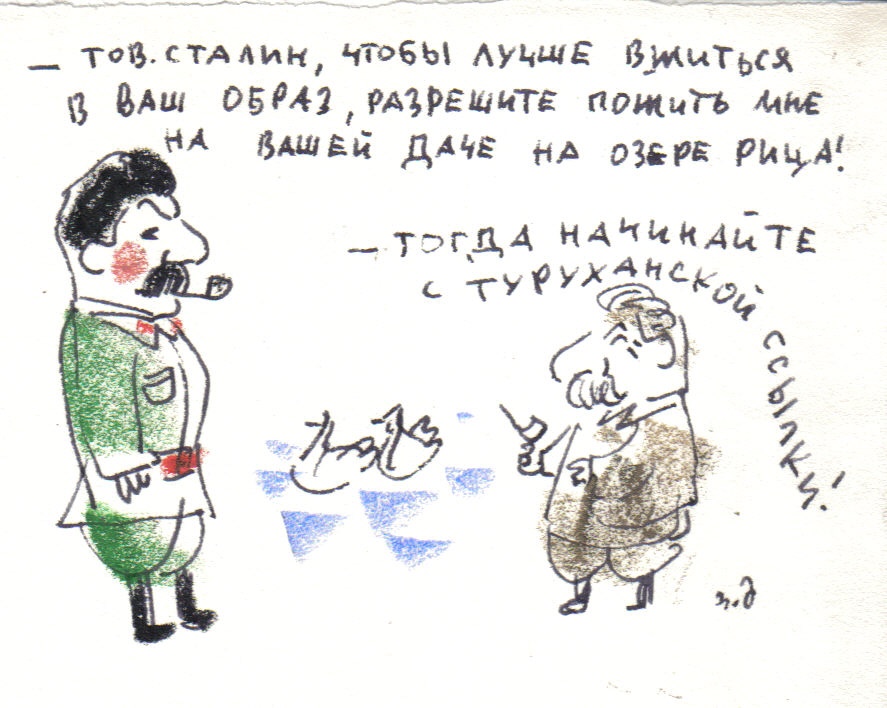 — ТОВ. СТАЛИН, ЧТОБЫ ЛУЧШЕ ВЖИТЬСЯ
В ВАШ ОБРАЗ, РАЗРЕШИТЕ ПОЖИТЬ МНЕ
НА ВАШЕЙ ДАЧЕ НА ОЗЕРЕ РИЦА!
— ТОГДА НАЧИНАЙТЕ
С ТУРУХАНСКОЙ ССЫЛКИ!